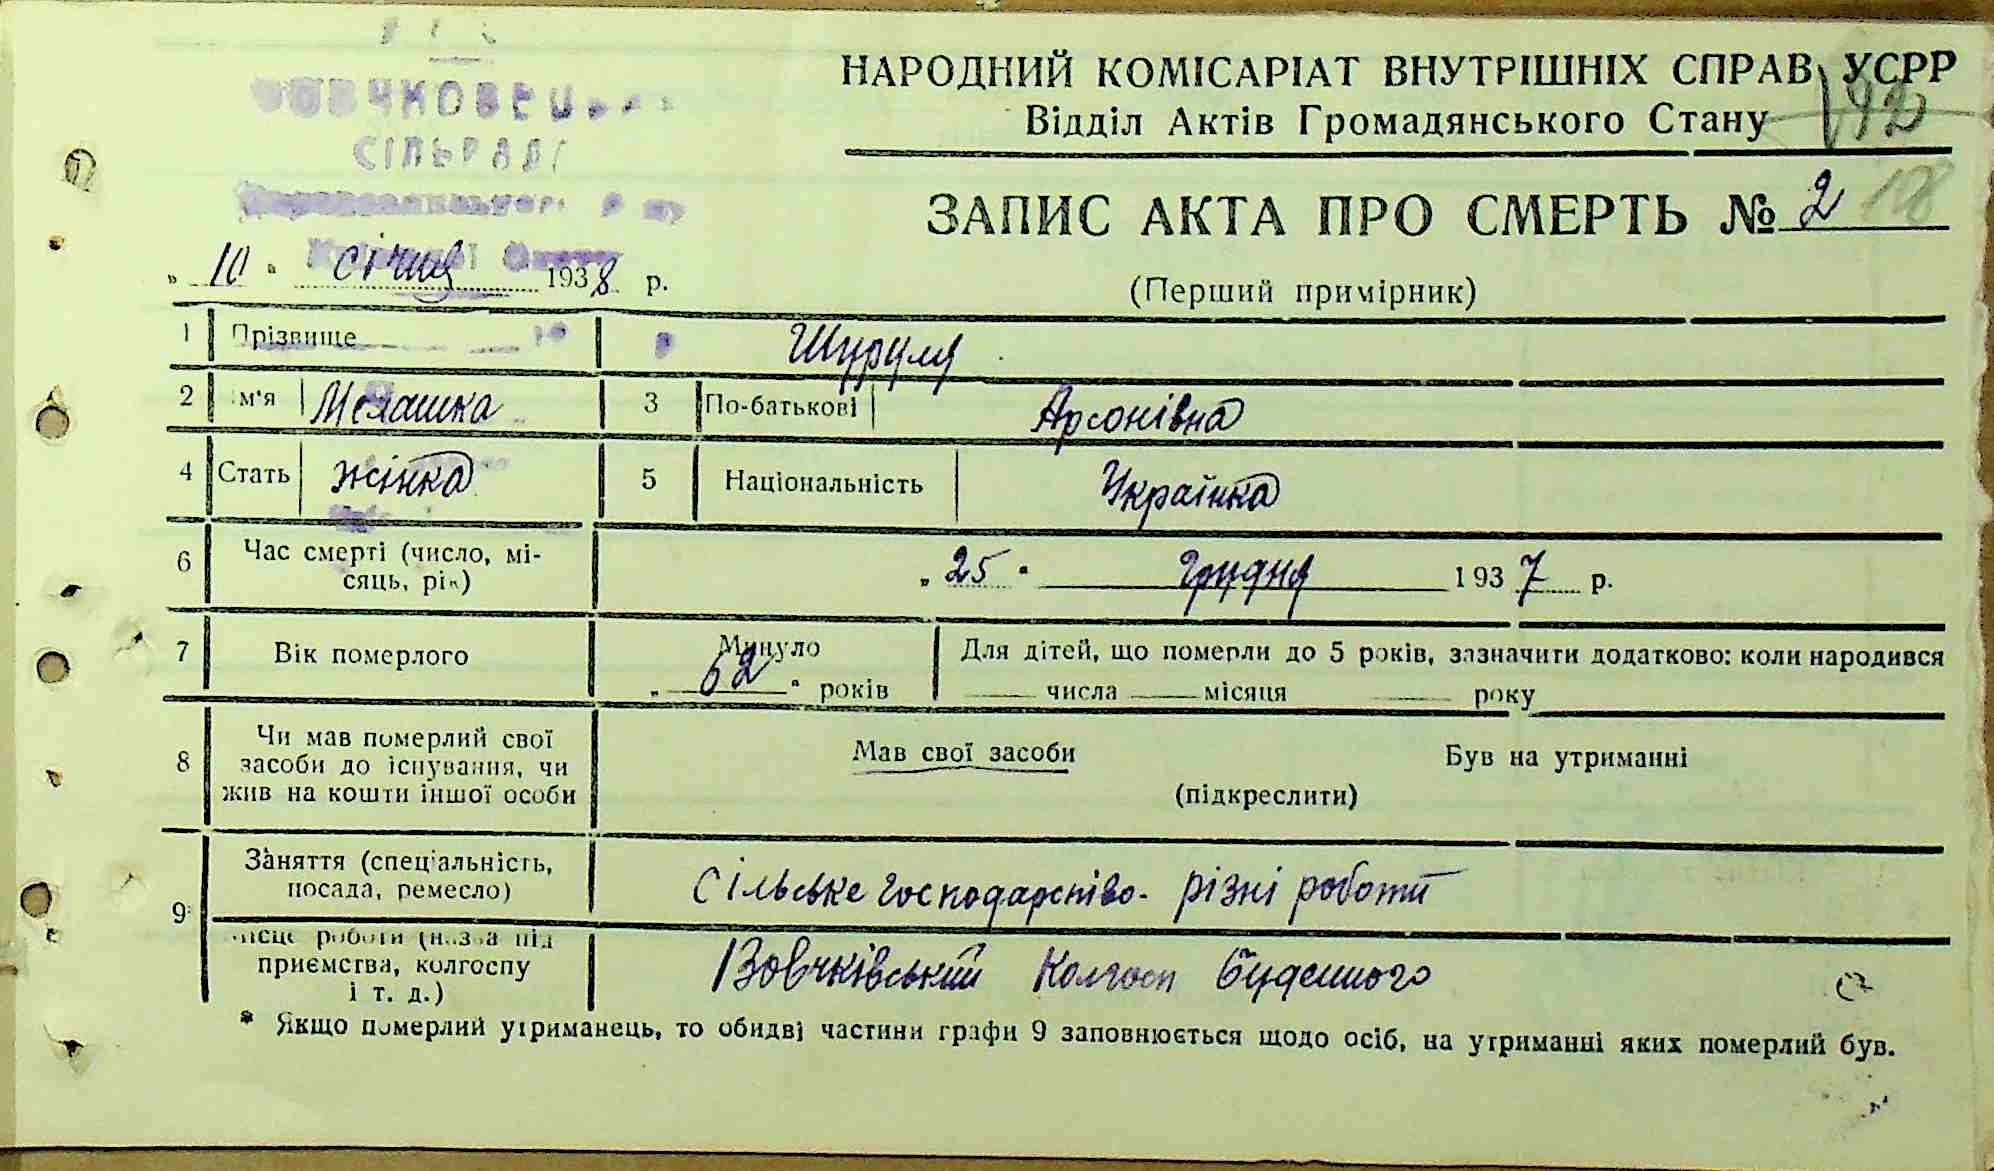 СІЛЬРАДА
НАРОДНИЙ КОМІСАРІАТ ВНУТРІШНІХ СПРАВ УСРР
Відділ Актів Громадянського Стану
192
ЗАПИС АКТА ПРО СМЕРТЬ № 2
„ 10 " січня 1938 р.
(Перший примірник)
1 Прізвище Шуруля
2 Ім'я Мелашка 3 По-батькові Арсонівна
4 Стать жінка 5 Національність Українка
6 Час смерті (число, мі-
сяць, рік) „ 25 " грудня 1937 р.
7 Вік померлого Минуло
„ 62 " років
Для дітей, що померли до 5 років, зазначити додатково: коли народився
числа місяця року
8 Чи мав померлий свої
засоби до існування, чи
жив на кошти іншої особи
Мав свої засоби Був на утриманні
(підкреслити)
9 Заняття (спеціальність,
посада, ремесло) Сільське господарство - різні роботи
Місце роботи (назва під
приємства, колгоспу
і т. д.) Вовчківський Колгосп Буденного
* Якщо померлий утриманець, то обидві частини графи 9 заповнюється щодо осіб, на утриманні яких померлий був.